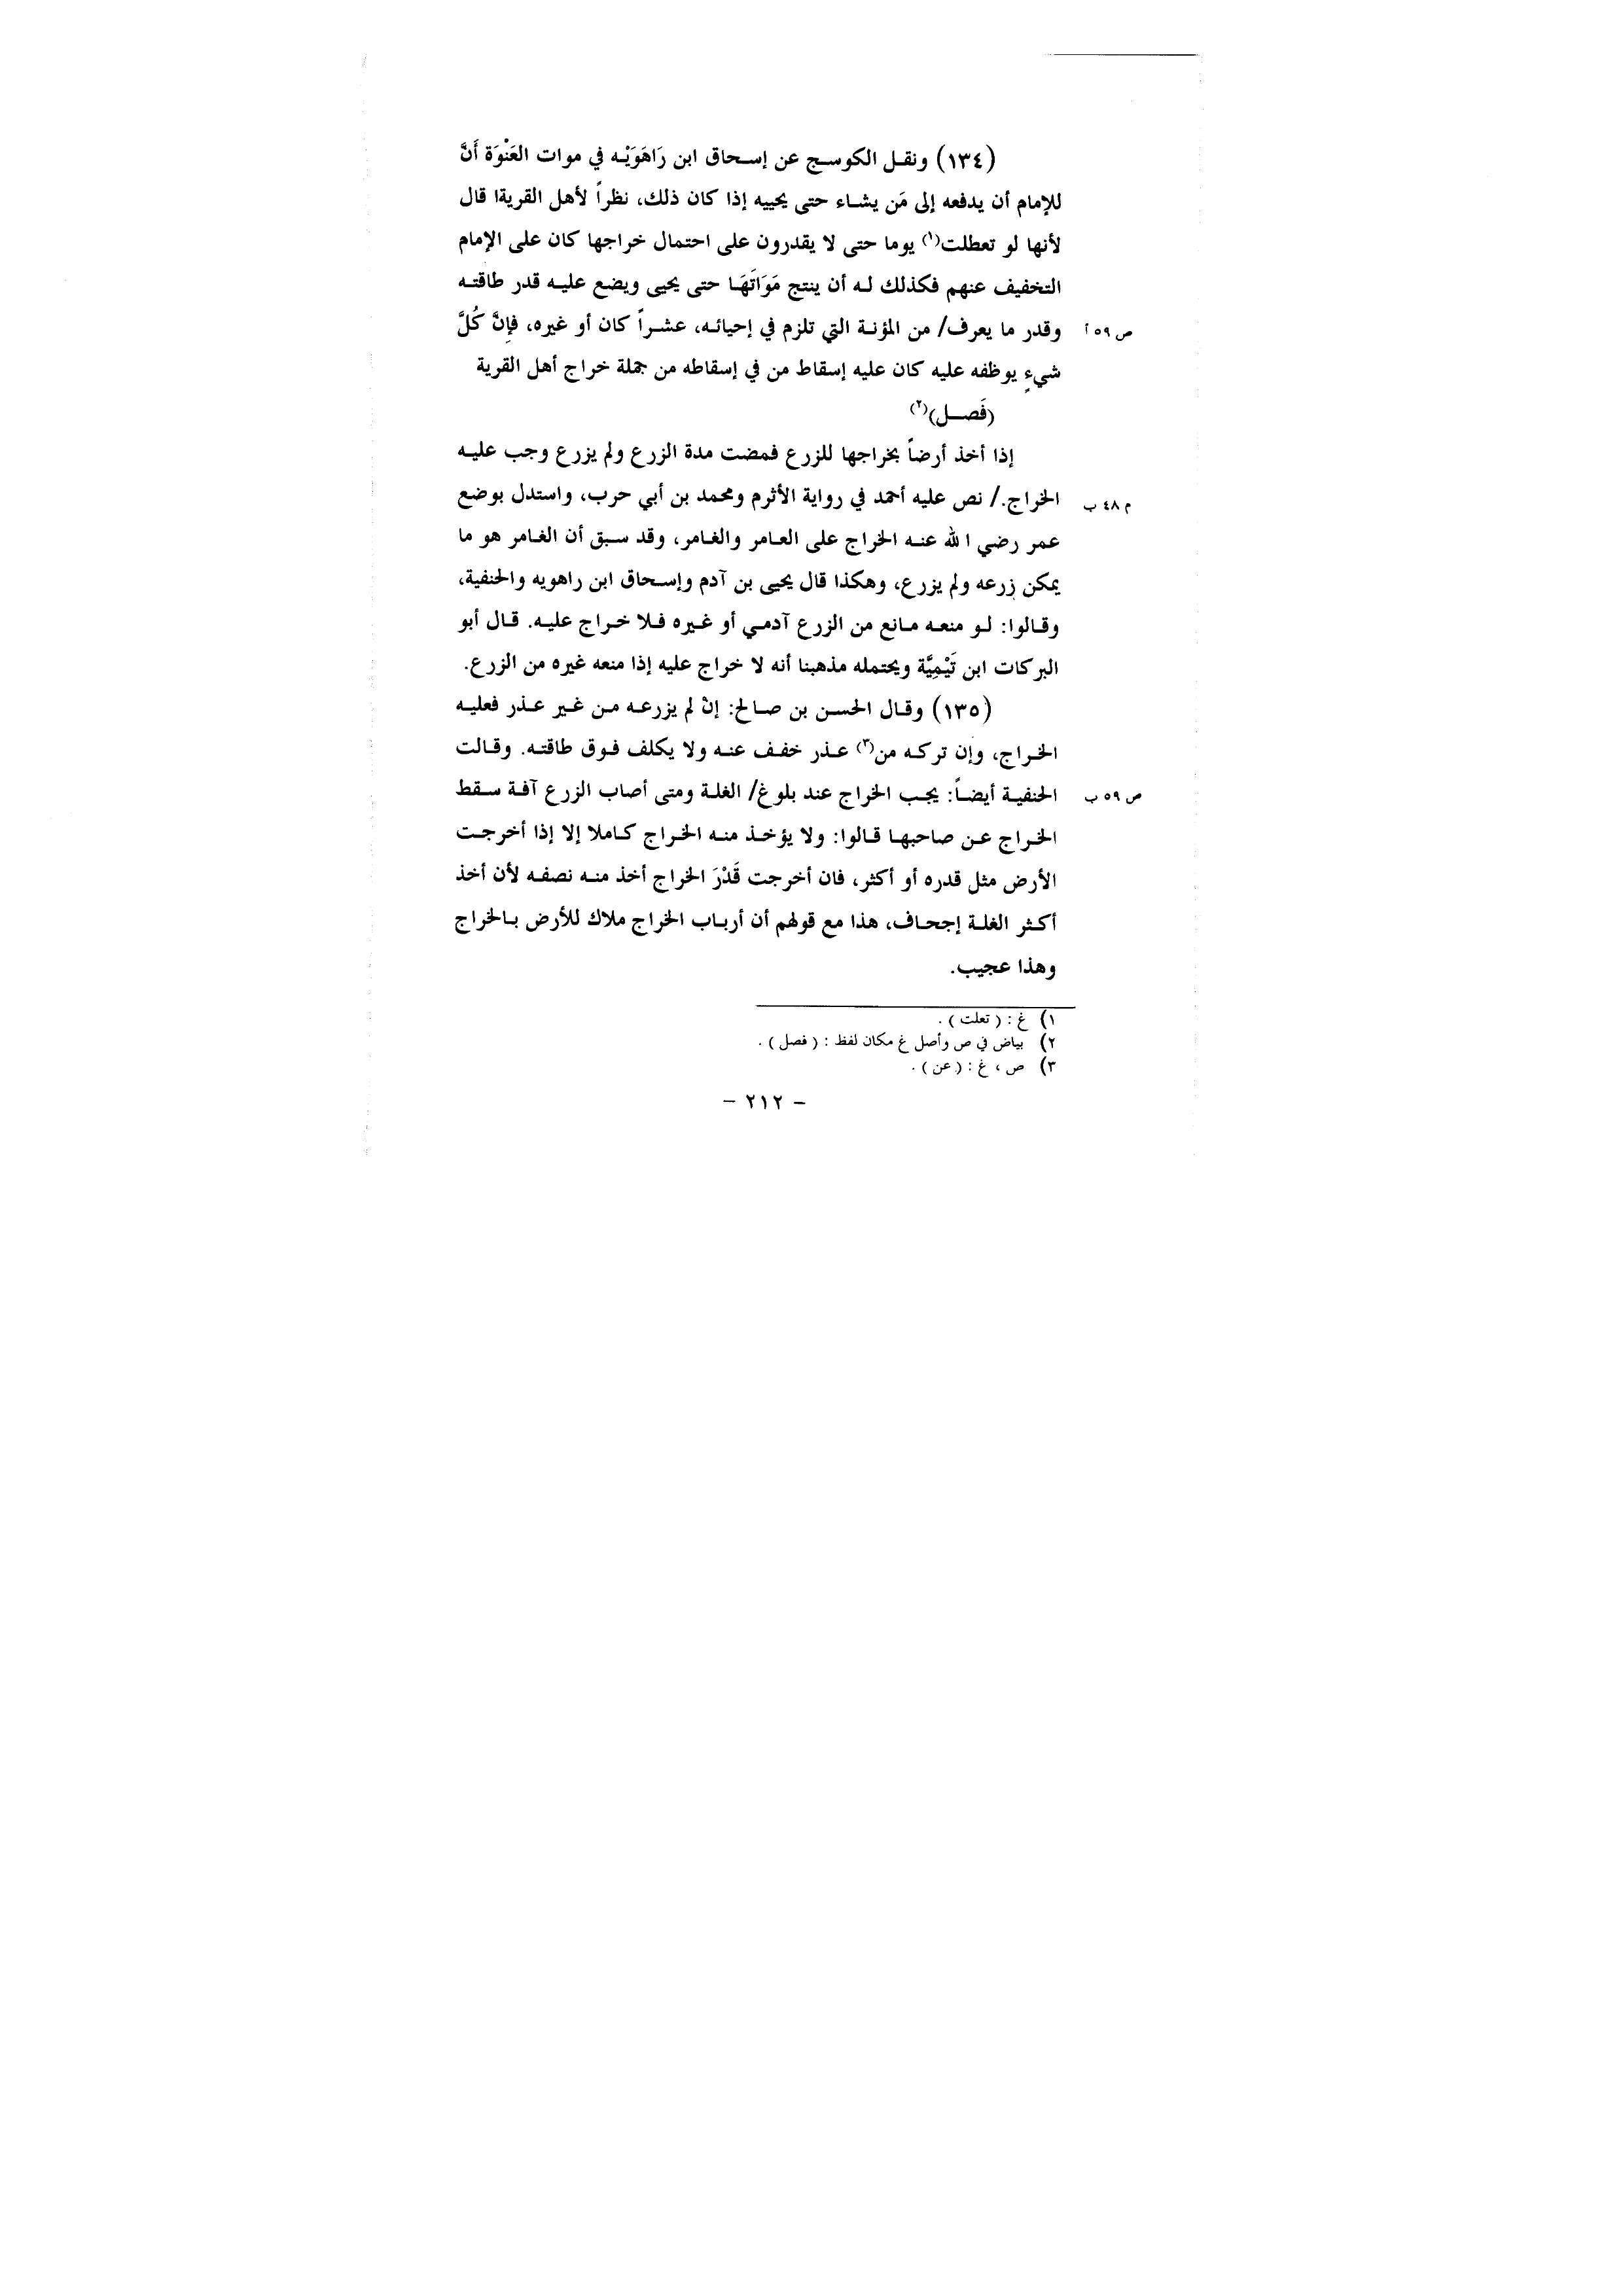 (١٣٤) ونقل الكوسج عن إسحاق ابن رَاهَوَيْه في موات العَنْوَة أَنَّ
للإمام أن يدفعه إلى مَن يشاء حتى يحييه إذا كان ذلك، نظراً لأهل القريةا قال
لأنها لو تعطلت(١) يوما حتى لا يقدرون على احتمال خراجها كان على الإمام
التخفيف عنهم فكذلك له أن ينتج مَوَاتَهَا حتى يحيى ويضع عليه قدر طاقته
ص ٥٩ أ وقدر ما يعرف/ من المؤنة التي تلزم في إحيائه، عشراً كان أو غيره، فإنَّ كُلَّ
شيءٍ يوظفه عليه كان عليه إسقاط من في إسقاطه من جملة خراج أهل القرية
(فَصل)(٢)
إذا أخذ أرضاً بخراجها للزرع فمضت مدة الزرع ولم يزرع وجب عليه
م ٤٨ ب الخراج./ نص عليه أحمد في رواية الأثرم ومحمد بن أبي حرب، واستدل بوضع
عمر رضي الله عنه الخراج على العامر والغامر، وقد سبق أن الغامر هو ما
يمكن زرعه ولم يزرع، وهكذا قال يحيى بن آدم وإسحاق ابن راهويه والحنفية،
وقالوا: لو منعه مانع من الزرع آدمي أو غيره فلا خراج عليه. قال أبو
البركات ابن تَيْمِيَّة ويحتمله مذهبنا أنه لا خراج عليه إذا منعه غيره من الزرع.
(١٣٥) وقال الحسن بن صالح: إنْ لم يزرعه من غير عذر فعليه
الخراج، وإن تركه من(٣) عذر خفف عنه ولا يكلف فوق طاقته. وقالت
ص ٥٩ ب الحنفية أيضاً: يجب الخراج عند بلوغ/ الغلة ومتى أصاب الزرع آفة سقط
الخراج عن صاحبها قالوا: ولا يؤخذ منه الخراج كاملا إلا إذا أخرجت
الأرض مثل قدره أو أكثر، فان أخرجت قَدْرَ الخراج أخذ منه نصفه لأن أخذ
أكثر الغلة إجحاف، هذا مع قولهم أن أرباب الخراج ملاك للأرض بالخراج
وهذا عجيب.
١) غ : ( تعلت ) .
٢) بياض في ص وأصل غ مكان لفظ : ( فصل ) .
٣) ص ، غ : ( عن ) .
– ٢١٢ –